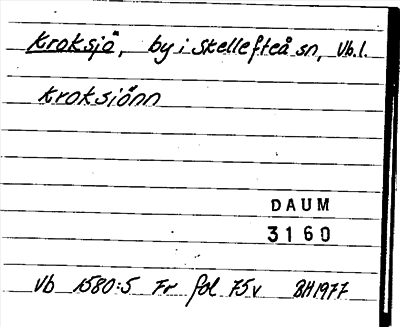 Kroksjö, by i Skellefteå sn, Vb.l.
Kroksiönn
DAUM
3160
Vb 1580:5 Fr fol 75v BH1977